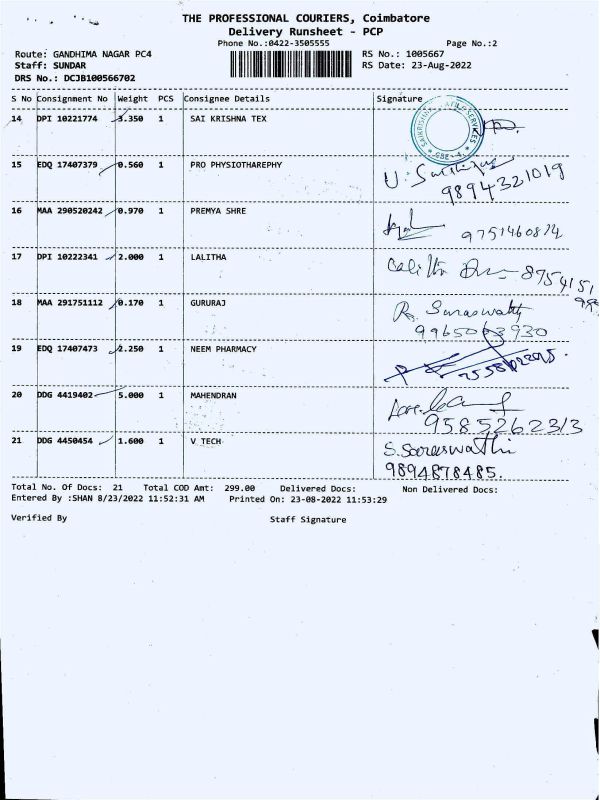 THE PROFESSIONAL COURIERS, Coimbatore
Delivery Runsheet - PCP
Phone No.:0422-3505555 Page No.:2
Route: GANDHIMA NAGAR PC4 RS No.: 1005667
Staff: SUNDAR RS Date: 23-Aug-2022
DRS No.: DCJB100566702
S No Consignment No Weight PCS Consignee Details Signature
14 DPI 10221774 3.350 1 SAI KRISHNA TEX
15 EDQ 17407379 0.560 1 PRO PHYSIOTHAREPHY
9894321019
16 MAA 290520242 0.970 1 PREMYA SHRE
17 DPI 10222341 2.000 1 LALITHA
18 MAA 291751112 0.170 1 GURURAJ R. Saraswathy
19 EDQ 17407473 2.250 1 NEEM PHARMACY
20 DDG 4419402 5.000 1 MAHENDRAN
9585262313
21 DDG 4450454 1.600 1 V TECH S. Sooraswathi
9894878485.
Total No. Of Docs: 21 Total COD Amt: 299.00 Delivered Docs: Non Delivered Docs:
Entered By :SHAN 8/23/2022 11:52:31 AM Printed On: 23-08-2022 11:53:29
Verified By Staff Signature